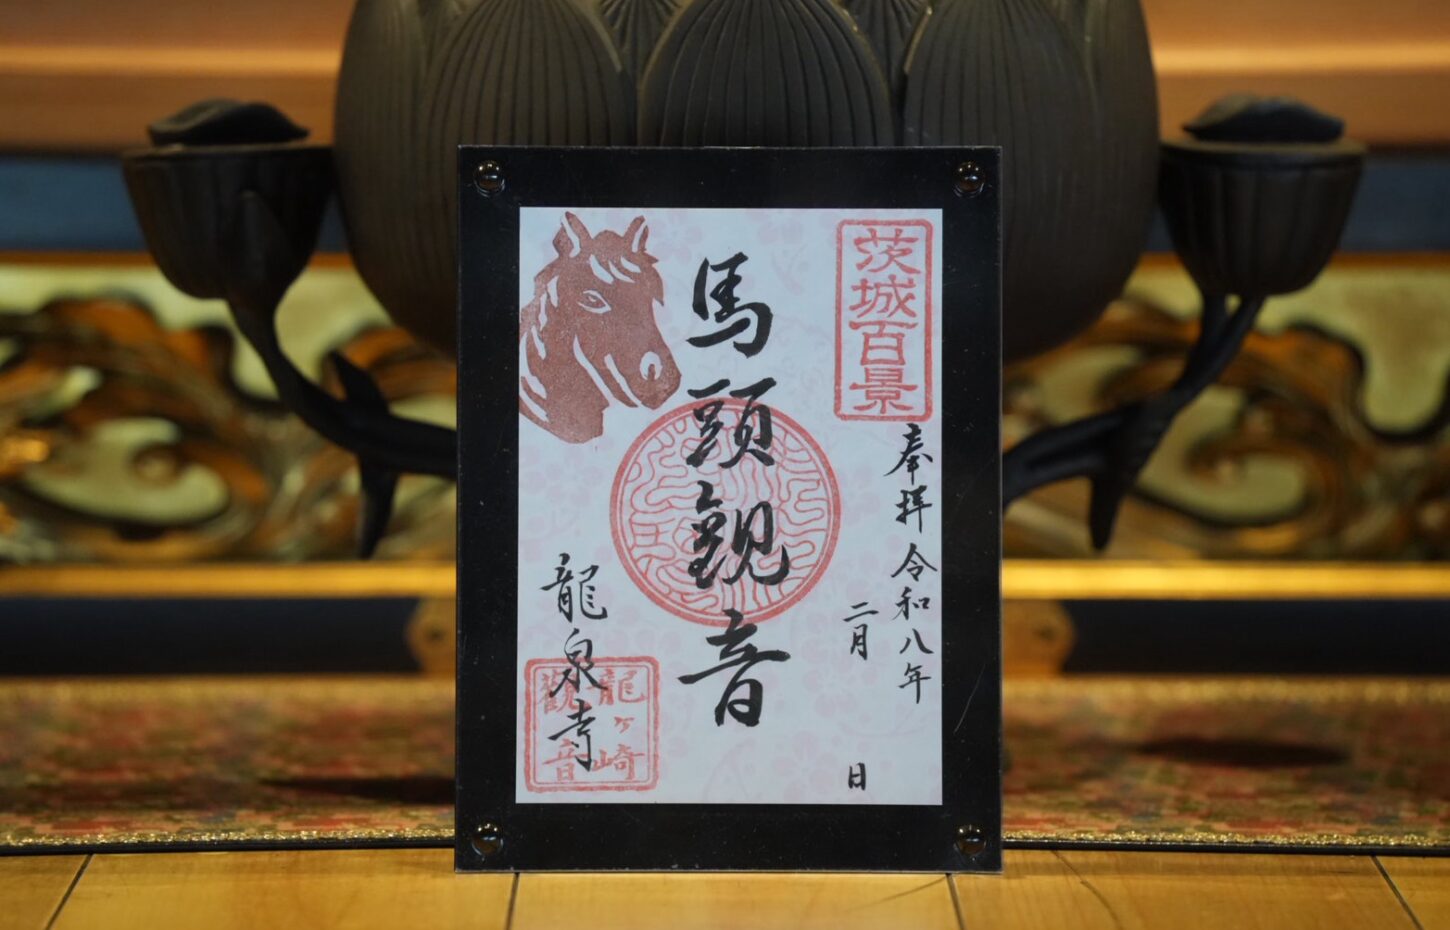 茨城百景
奉拝 令和八年
二月 日
馬頭観音
龍泉寺
龍ヶ崎
觀音